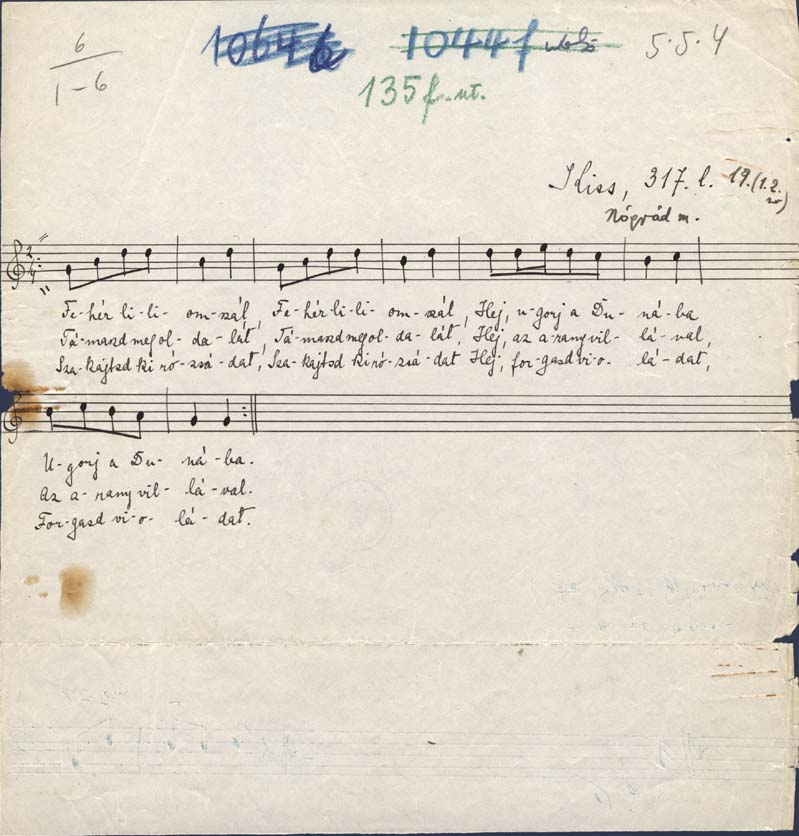 6
1-6
1064 b
1044 f utolsó
5.5.4
135 f.-ut.
Kiss, 317. l. 19. (1.2.
Nógrád m.
2/4
Fe-hér li-li- om-szál, Fe-hér li-li- om-szál, Hej, u-gorj a Du- ná-ba
Tá-maszd meg ol- da-lát, Tá-maszd meg ol- da-lát, Hej, az a-rany vil- lá-val,
Sza-kajtsd ki ró-zsá-dat, Sza-kajtsd ki ró-zsá-dat Hej, for-gasd vi-o- lá-dat,
U-gorj a Du- ná-ba.
Az a-rany vil- lá-val.
For-gasd vi-o- lá-dat.